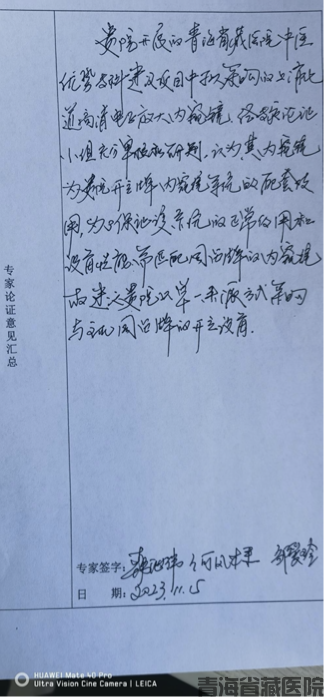 贵院开展的青海省藏医院中医
优势专科建设项目中拟采购的上消化
道高清电子放大内窥镜,经专家论证
小组充分审核和研判,认为其内窥镜
为贵院开立牌内窥镜系统的配套使
用,为了保证该系统的正常使用和
设备性能,需匹配同品牌的内窥镜
故建议贵院以单一来源方式采购
与主机同品牌的开立设备.
专家论证意见汇总
专家签字:
日 期: 2023.11.5
HUAWEI Mate 40 Pro
Ultra Vision Cine Camera | LEICA
青海省藏医院